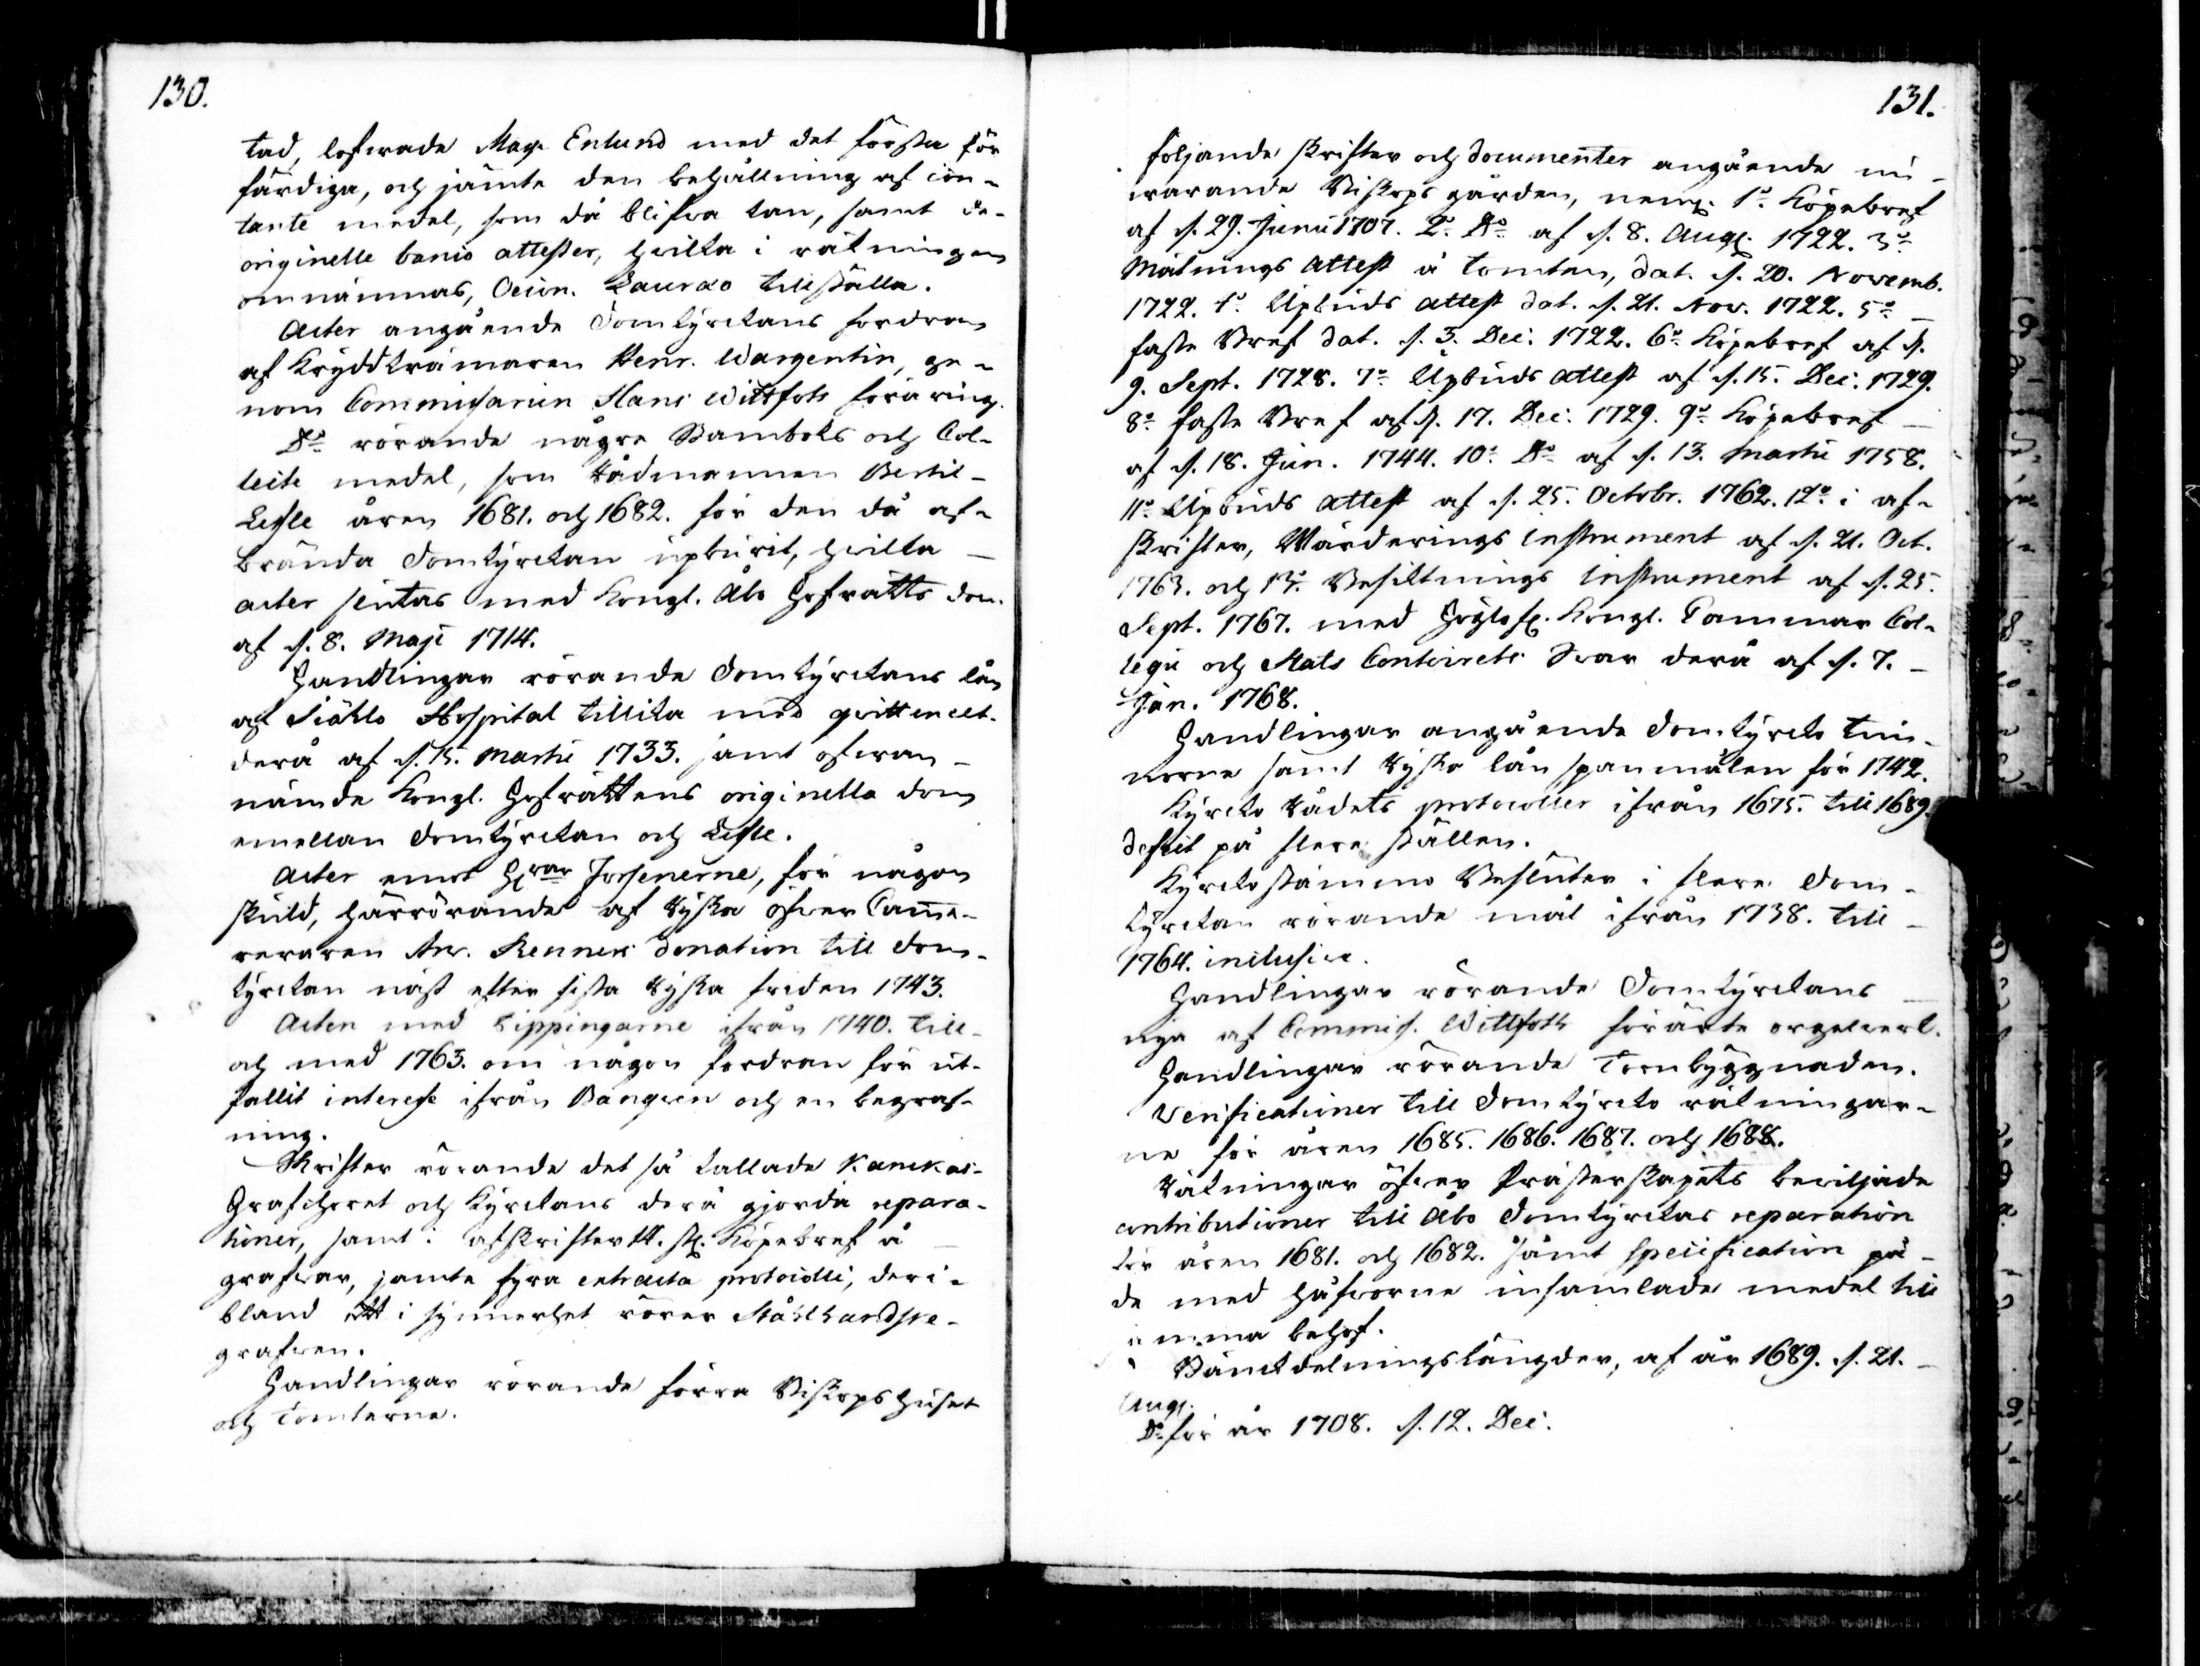 130.
tad, lofwade Mag. Enlund med det första för
färdiga, och jämte den behållning af con-
tante medel, som då blifwa kan, samt de-
originelle banco attester, hwilka i räkningen
omnämnas, Oecon. Lauraeo tillställa.
Acter angående Domkyrckans fordran
af Kryddkrämaren Henr. Wargentin, ge-
nom Commissarien Hans Wittfoths föräring.
Do rörande några Stamboks och Col-
lecte medel, som Rådmannen Bertil
Lesle åren 1681. och 1682. för den då af-
brända Domkyrckan upburit, hwilka
acter slutas med Kongl. Åbo Hofrätts dom
af d. 8. Maji 1714.
Handlingar rörande Domkyrckans lån
af Siählo Hospital tillika med qvittencet
derå af d. 15. Martii 1733. samt ofwan-
nämde Kongl. Hofrättens originella dom
emellan Domkyrckan och Lesle.
Acter emot Hrar Forssenerne, för någon
skuld, härrörande af Ryska öfwer Came-
reraren And. Renners donation till Dom-
kyrckan näst efter sista Ryska freden 1743.
Acten med Tippingarne ifrån 1740. till
och med 1763. om någon fordran för ut-
fallit interesse ifrån Banqven och en begraf-
ning.
Skrifter rörande det så kallade Kanckas-
Grafchoret och Kyrckans derå gjorda repara-
tioner, samt i afskrifter 11. st. Köpebref å
grafwar, jämte fyra extracta protocolli, deri-
bland ett i synnerhet rörer Stålhandske-
grafwen.
Handlingar rörande förra Biskopshuset
och Tomterne.
131.
följande skrifter och documenter angående nu-
warande Biskopsgården, neml. 1o. Köpebref
af d. 29. Junii 1707. 2o. Do af d. 8. Aug. 1722. 3o
Mätnings Attest å tomten, dat. d. 20. Novemb.
1722. 4o Upbuds attest dat. d. 21. Nov. 1722. 5o
faste Bref dat. d. 3. Dec. 1722. 6o Köpebref af d.
9. Sept. 1728. 7o Upbuds attest af d. 15. Dec. 1729.
8o faste Bref af d. 17. Dec. 1729. 9o Köpebref
af d. 18. Jun. 1744. 10o Do af d. 13. Martii 1758.
11o Upbuds attest af d. 25. Octobr. 1762. 12o i af-
skrifter, Wärderings instrument af d. 21. Oct.
1763. och 13o Besiktnings instrument af d. 25.
Sept. 1767. med Höglofl. Kongl. Cammar Col-
legii och Stats Contoirets Swar derå af d. 7.
Jan. 1768.
Handlingar angående Domkyrcko
samt Ryska lån spanmålen för 1742.
Kyrcko Rådets protocoller ifrån 1675. till 1689.
defect på flere ställen.
Kyrckostämmo Besluter i flere Dom-
kyrckan rörande mål ifrån 1738. till
1764. inclusive.
Handlingar rörande Domkyrckans
nya af Commis. Wittfoth förärte orgelverk.
Handlingar rörande Tornbyggnaden.
Verificationer till Domkyrcko räkningar-
ne för åren 1685. 1686. 1687. och 1688.
Räkningar öfwer Prästerskapets bewiljade
contributioner till Åbo Domkyrckas reparation
för åren 1681. och 1682. Sämt specification på
de med håfworne insamlade medel till
samma behof.
Bänckdelningslängder, af år 1689. d. 21.
Aug.
Do för år 1708. d. 12. Dec.